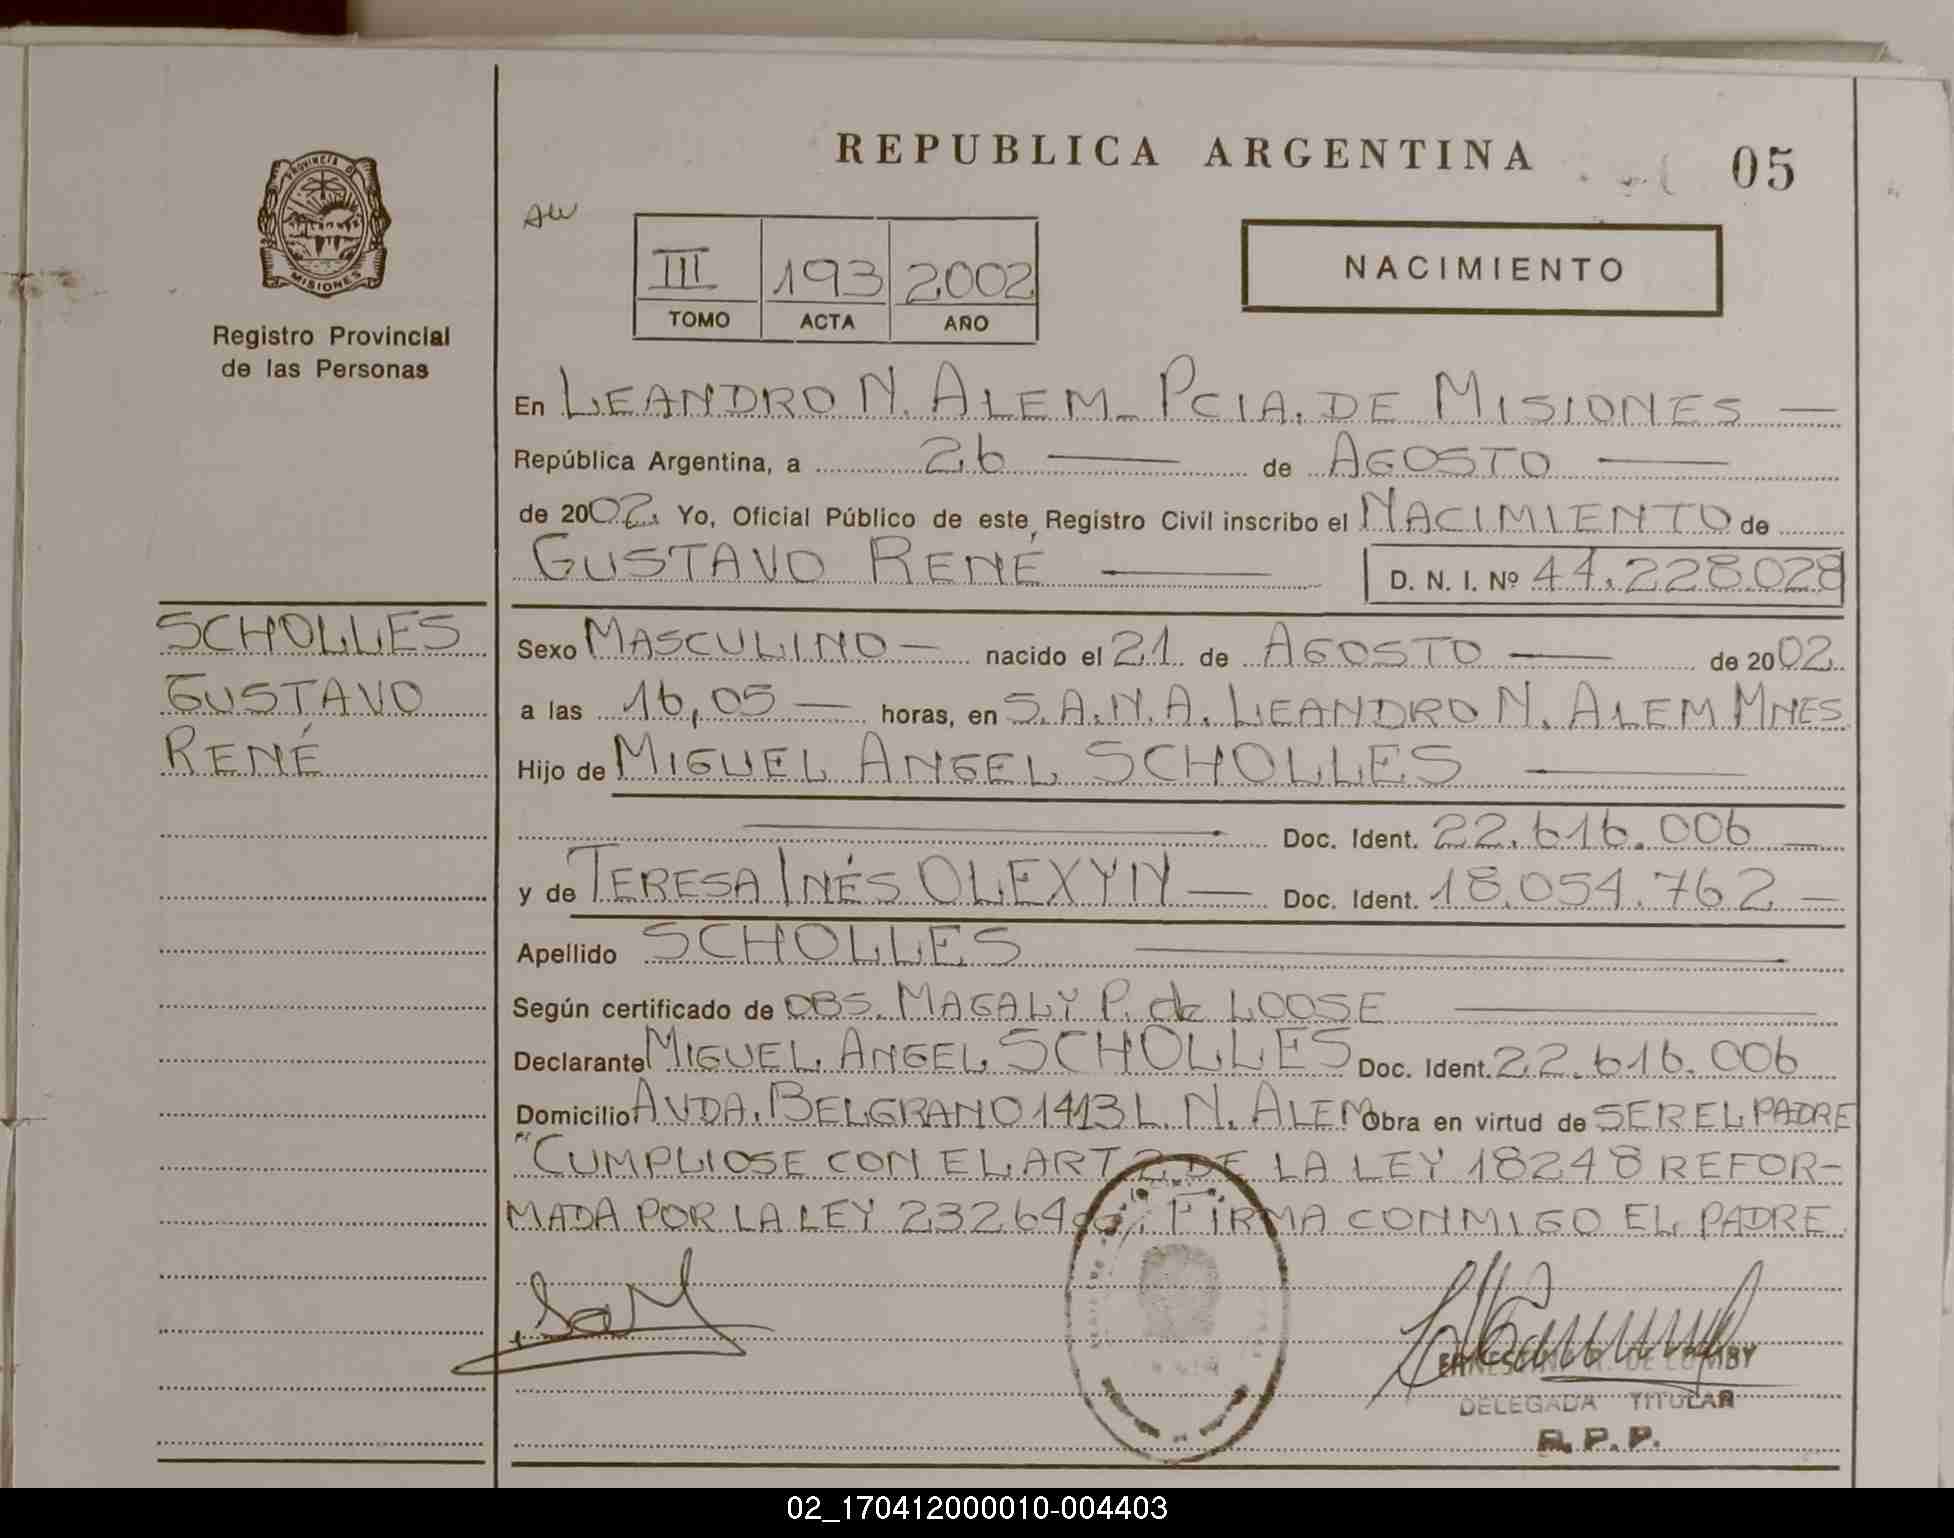 REPUBLICA ARGENTINA
05
PROVINCIA D
MISIONES
Registro Provincial
de las Personas
AW
III 193 2002
TOMO ACTA AÑO
NACIMIENTO
En LEANDRO N. ALEM - PCIA. DE MISIONES —
República Argentina, a 26 — de AGOSTO —
de 2002. Yo, Oficial Público de este Registro Civil inscribo el NACIMIENTO de
GUSTAVO RENÉ — D. N. I. Nº 44.228.028
SCHOLLES
GUSTAVO
RENÉ
Sexo MASCULINO — nacido el 21 de AGOSTO — de 2002
a las 16,05 — horas, en S.A.N.A. LEANDRO N. ALEM MNES
Hijo de MIGUEL ANGEL SCHOLLES —
— Doc. Ident. 22.616.006 —
y de TERESA INÉS OLEXYN — Doc. Ident. 18.054.762 —
Apellido SCHOLLES —
Según certificado de OBS. MAGALY P. de LOOSE —
Declarante MIGUEL ANGEL SCHOLLES Doc. Ident. 22.616.006
Domicilio AVDA. BELGRANO 1413 L. N. ALEM Obra en virtud de SER EL PADRE
"CUMPLIOSE CON EL ART 2 DE LA LEY 18248 REFOR-
MADA POR LA LEY 23264 FIRMA CONMIGO EL PADRE.
DE LOMBY
DELEGADA TITULAR
R.P.P.
02_170412000010-004403